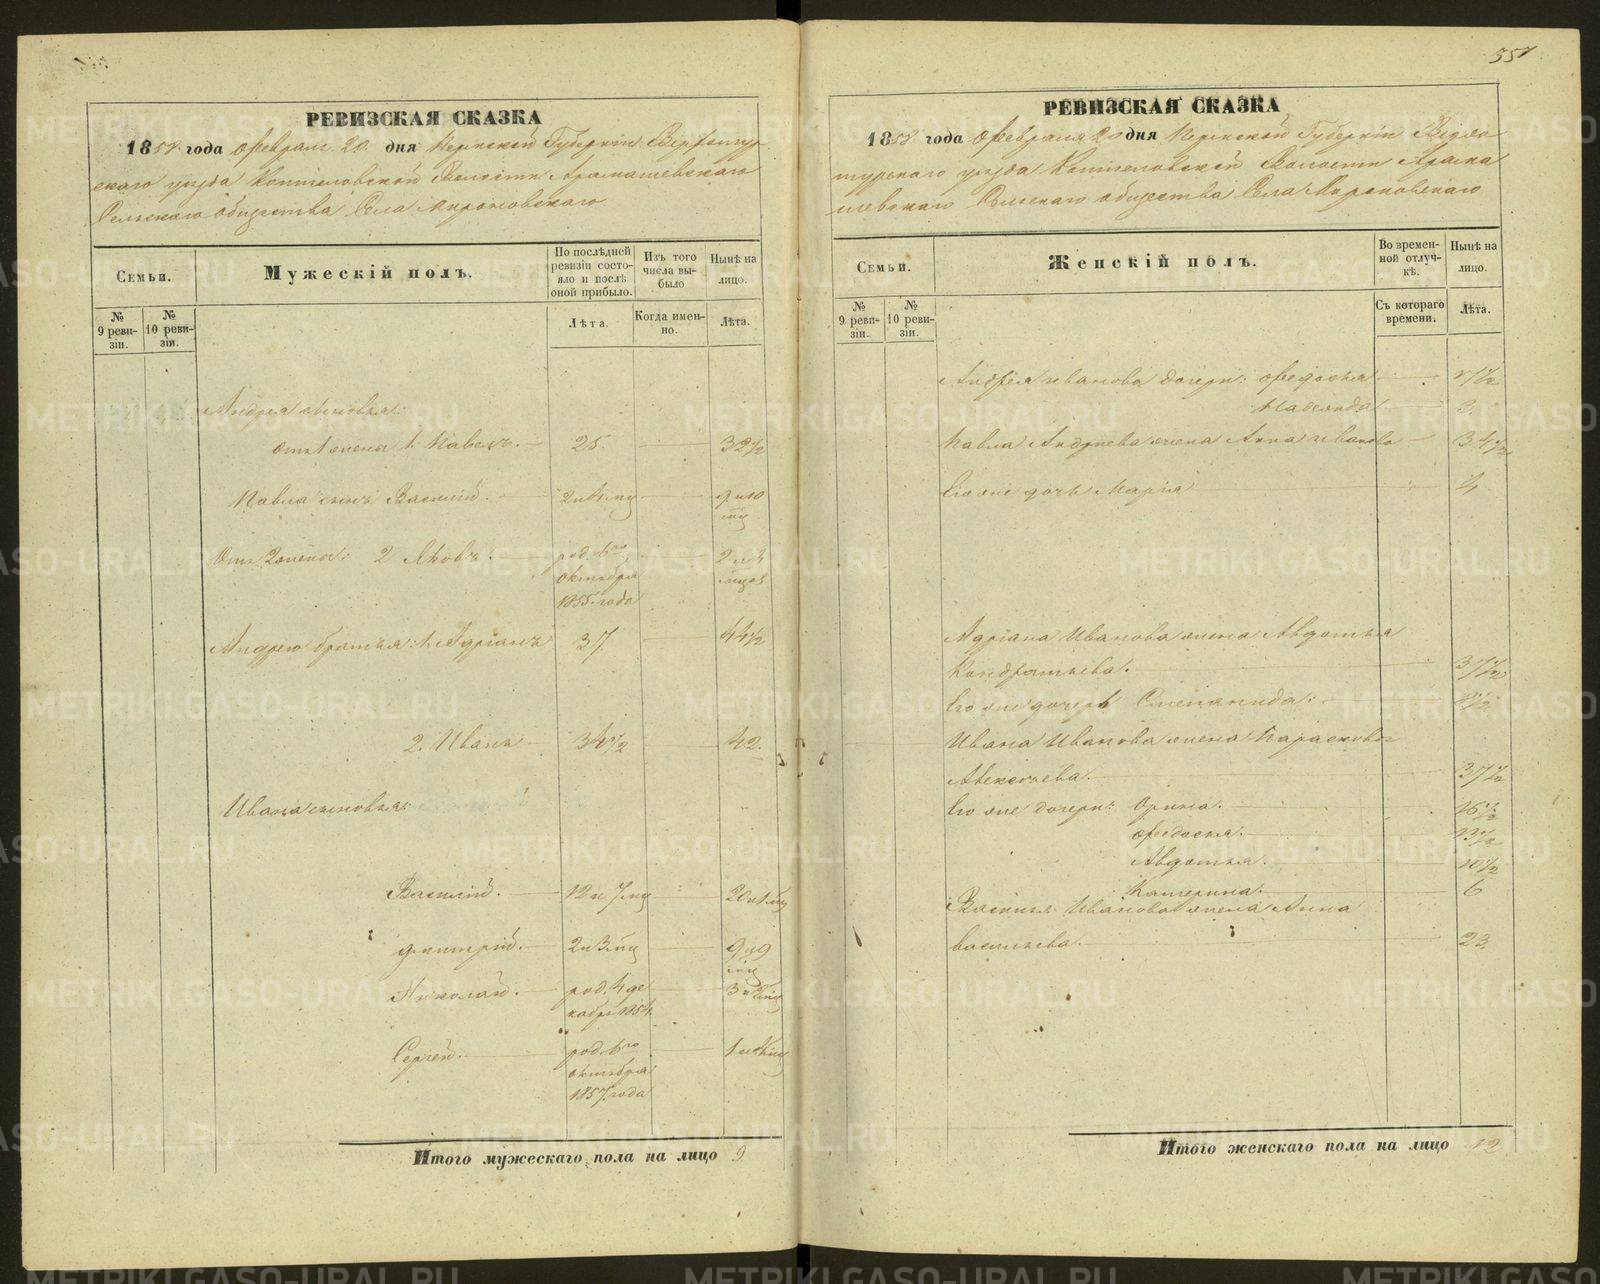 351
РЕВИЗСКАЯ СКАЗКА
1858 года Февраля 20 дня Пермской Губерніи Верхотур
скаго уѣзда Коптеловской Волости Арамашевскаго
Сельскаго общества Села Мироновскаго
Семьи.
Мужескій полъ.
По послѣдней ревизіи состояло и послѣ оной прибыло.
Изъ того числа выбыло
Нынѣ на лицо.
№ 9 ревизіи.
№ 10 ревизіи.
Лѣта.
Когда именно.
Лѣта.
Андрея сыновья:
отъ 1 жены 1. Павелъ. 25 32½
Павла сынъ Василій. 2 и 4 мц 9 и 10 мц
Отъ 2 жены: 2 Яковъ. род. 6го октября 1855 года 2 и 3 мцов
Андрею братья: 1. Адріанъ 37 44½
2. Иванъ 34½ 42.
Ивана сыновья:
Василій. 12 и 7 мц 20 и 1 мц
Дмитрій. 2 и 3 мц 9 и 9 мц
Николай. род. 4 декабр 1854 3 и мц
Сергей. род. 6го октября 1857 года мц
Итого мужескаго пола на лицо 9
РЕВИЗСКАЯ СКАЗКА
1858 года Февраля 20 дня Пермской Губерніи Верхо
турскаго уѣзда Коптеловской Волости Арама
шевскаго Сельскаго общества Села Мироновскаго
Семьи.
Женскій полъ.
Во временной отлучкѣ.
Нынѣ на лицо.
№ 9 ревизіи.
№ 10 ревизіи.
Съ котораго времени.
Лѣта.
Андрея Иванова дочери: Федосья
Надежда 3.
Павла Андреева жена Анна Иванова 34½
Его же дочь Марія 4
Адріана Иванова жена Авдотья
Кондратьева. 37½
Его же дочерь Степанида: 8½
Ивана Иванова жена Парасковья
Алексеева. 37½
Его же дочери: Орина. 16½
Федосья. 13½
Авдотья. 10½
Катерина. 6
Василья Иванова жена Анна
Васильева. 23.
Итого женскаго пола на лицо 12
METRIKI.GASO-URAL.RU